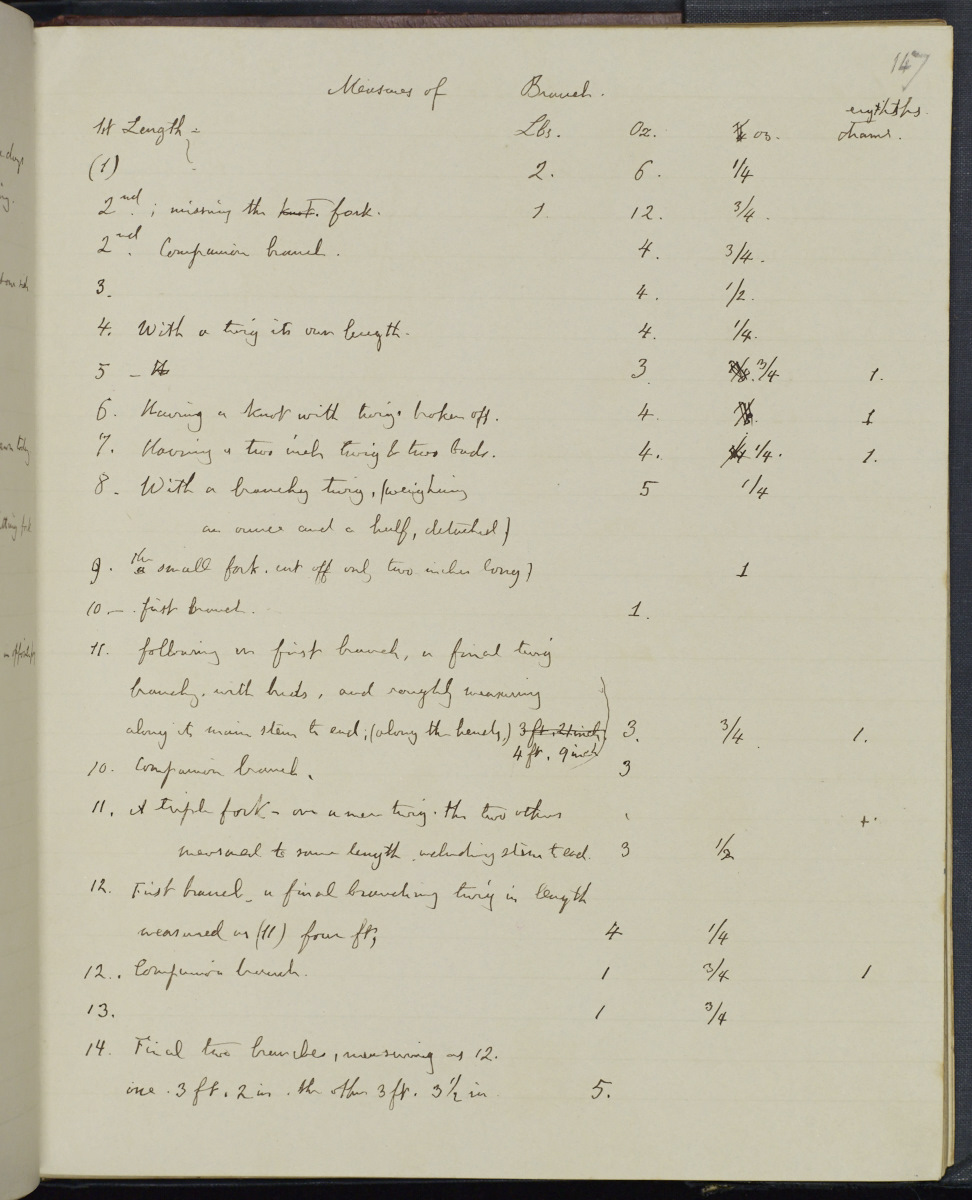 147
Measures of Branch.
1st Length - Lbs. Oz. ¼ oz. drams.
(1) 2. 6. 1/4
2nd.; missing the knot. fork. 1. 12. 3/4.
2nd. Companion branch. 4. 3/4.
3. 4. 1/2.
4. With a twig its own length. 4. 1/4.
5 - 3. 3/4 1.
6. Having a knot with twigs broken off. 4. 1
7. Having a two inch twig & two buds. 4. 1/4. 1.
8. With a branchy twig, (weighing 5 1/4
an ounce and a half, detached)
9. a small fork. cut off only two inches long) 1
10 - first branch. 1.
11. following on first branch, a final twig
branchy. with buds, and roughly measuring
along its main stem to end; (along the bends,) 3 ft. 2 inch 3. 3/4. 1.
4 ft. 9 inch
10. Companion branch. 3
11. A triple fork - one a mere twig. the two others +
measured to same length including stem to end. 3 1/2
12. First branch, a final branching twig in length
measured as (11) four ft, 4 1/4
12. Companion branch. 1 3/4 1
13. 1 3/4
14. Final two branches, measuring as 12.
one. 3 ft. 2 in. the other 3 ft. 3 1/2 in 5.